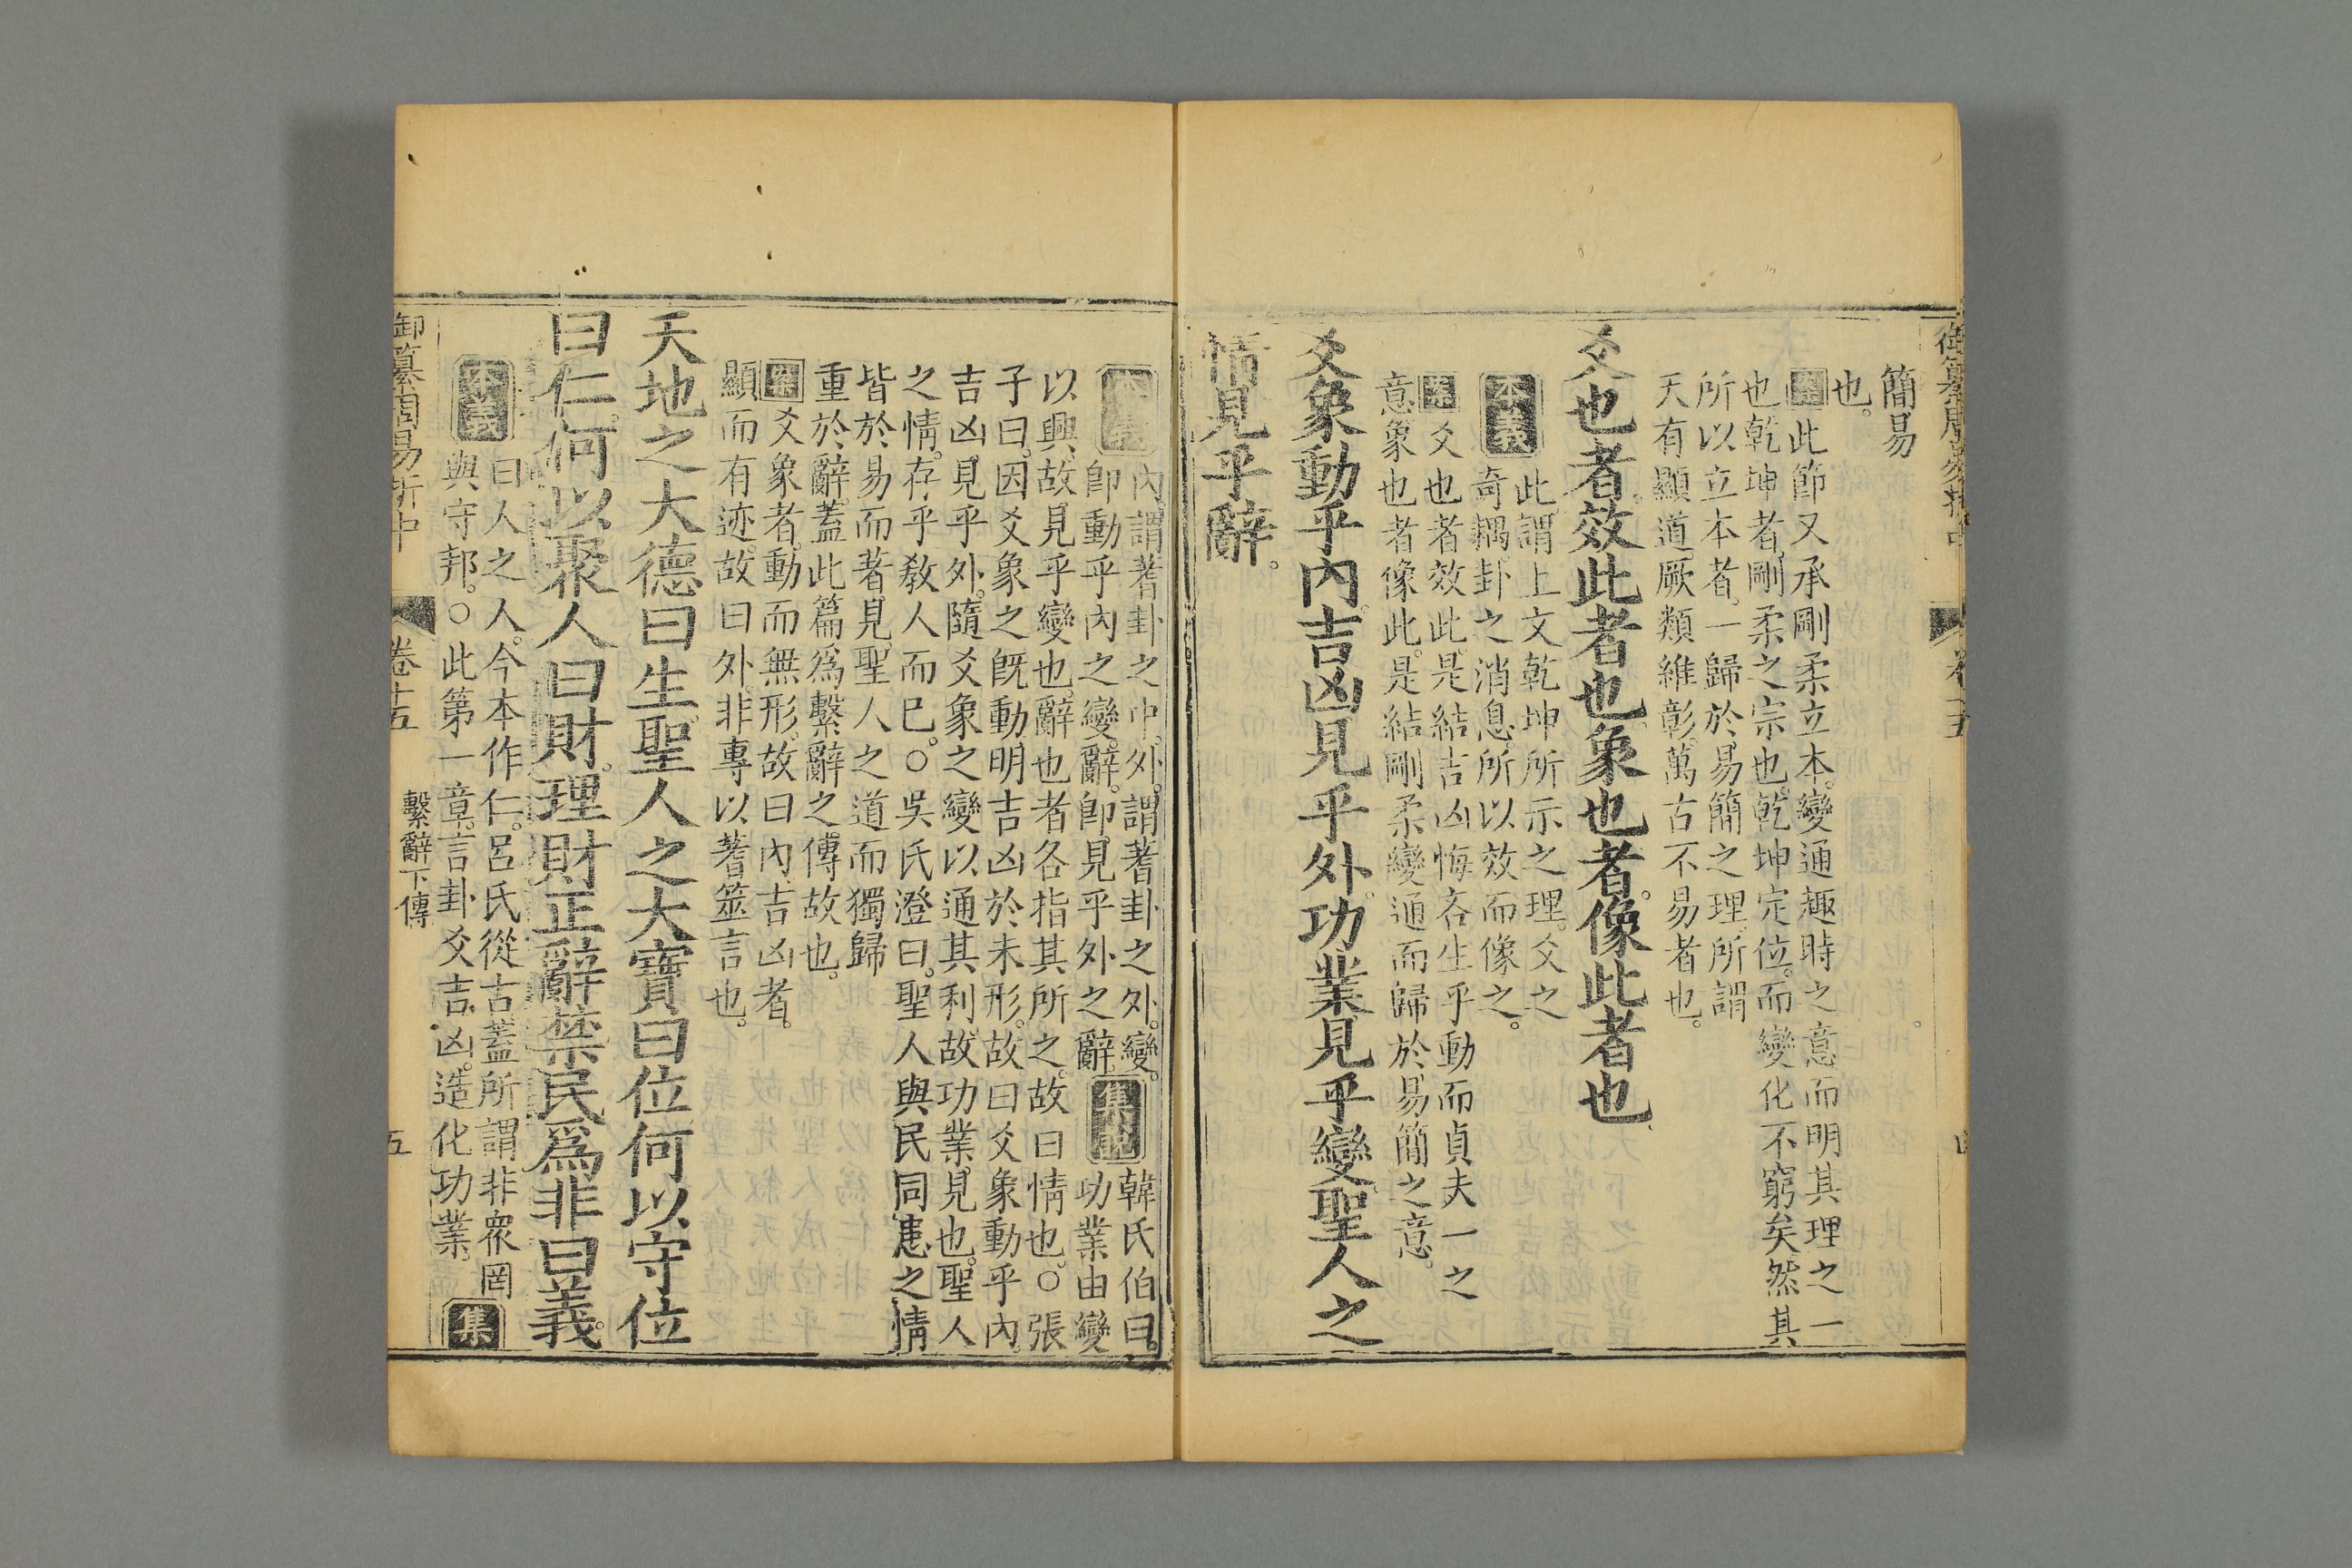 御纂周易折中
卷十五
簡易
也。
案此節又承剛柔立本。變通趣時之意而明其理之一
也乾坤者剛柔之宗也。乾坤定位。而變化不窮矣。然其
所以立本者。一歸於易簡之理。所謂
天有顯道。厥類維彰。萬古不易者也。
爻也者。效此者也。象也者。像此者也。
本義
此謂上文乾坤所示之理。爻之
奇耦。卦之消息。所以效而像之。
案爻也者效此。是結吉凶悔吝生乎動而貞夫一之
意。象也者像此。是結剛柔變通而歸於易簡之意。
爻象動乎內。吉凶見乎外。功業見乎變。聖人之
情見乎辭。
本義
內。謂蓍卦之中。外。謂蓍卦之外。變。
卽動乎內之變。辭。卽見乎外之辭。
集說
韓氏伯曰。
功業由變
以興。故見乎變也。辭也者各指其所之。故曰情也。○張
子曰。因爻象之旣動。明吉凶於未形。故曰爻象動乎內。
吉凶見乎外。隨爻象之變以通其利。故功業見也。聖人
之情。存乎敎人而已。○吳氏澄曰。聖人與民同患之情
皆於易而著見。聖人之道而獨歸
重於辭。蓋此篇爲繫辭之傳故也。
案爻象者。動而無形。故曰內。吉凶者。
顯而有迹。故曰外。非專以蓍筮言也。
天地之大德曰生。聖人之大寶曰位。何以守位
曰仁。何以聚人曰財。理財正辭。禁民爲非曰義。
本義
曰人之人。今本作仁。呂氏從古。蓋所謂非衆罔
與守邦。○此第一章。言卦爻吉凶。造化功業。
集
御纂周易折中
卷十五
繫辭下傳
五